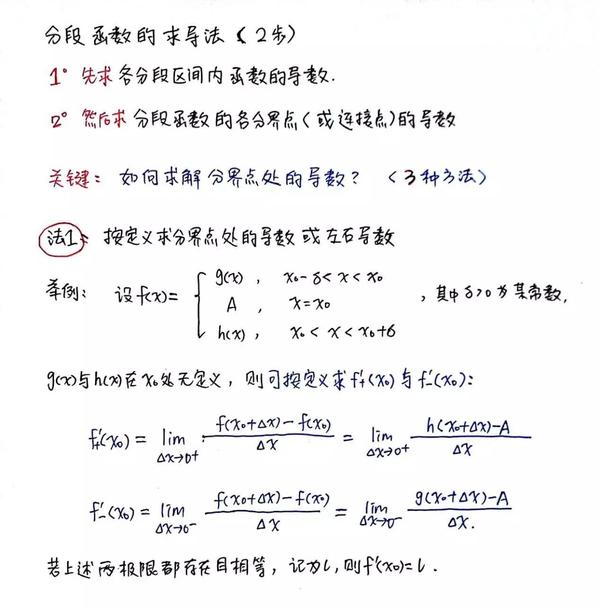 分段函数的求导法（2步）
1° 先求各分段区间内函数的导数.
2° 然后求分段函数的各分界点(或连接点)的导数
关键：如何求解分界点处的导数？（3种方法）
法1：按定义求分界点处的导数或左右导数
举例：设f(x)= { g(x), x₀-δ<x<x₀
A, x=x₀ ，其中δ>0为某常数,
h(x), x₀<x<x₀+δ
g(x)与h(x)在x₀处无定义，则可按定义求f'₊(x₀)与f'₋(x₀):
f'₊(x₀) = lim_{Δx→0⁺} (f(x₀+Δx)-f(x₀))/Δx = lim_{Δx→0⁺} (h(x₀+Δx)-A)/Δx
f'₋(x₀) = lim_{Δx→0⁻} (f(x₀+Δx)-f(x₀))/Δx = lim_{Δx→0⁻} (g(x₀+Δx)-A)/Δx.
若上述两极限都存在且相等，记为l,则f'(x₀)=l.